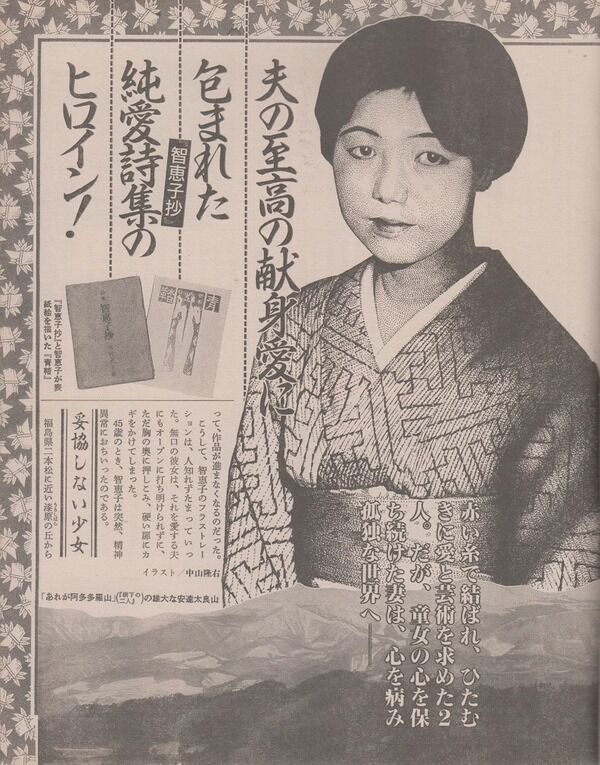 夫の至高の献身愛に
包まれた
『智恵子抄』
純愛詩集の
ヒロイン!
『智恵子抄』と智恵子が表
紙絵を描いた『青鞜』
智恵子抄
青鞜
って、作品が進まなくなるのだった。
こうして、智恵子のフラストレー
ションは、人知れずたまっていっ
た。無口の彼女は、それを愛する夫
にもオープンに打ち明けられずに、
ただ胸の奥に押しこみ、硬い扉にカ
ギをかけてしまった。
45歳のとき、智恵子は突然、精神
異常におちいったのである。
妥協しない少女
福島県二本松に近い漆原の丘から
イラスト/中山隆右
赤い糸で結ばれ、ひたむ
きに愛と芸術を求めた2
人。だが、童女の心を保
ち続けた妻は、心を病み
孤独な世界へ——
「あれが阿多多羅山」(『樹下の二人』)の雄大な安達太良山